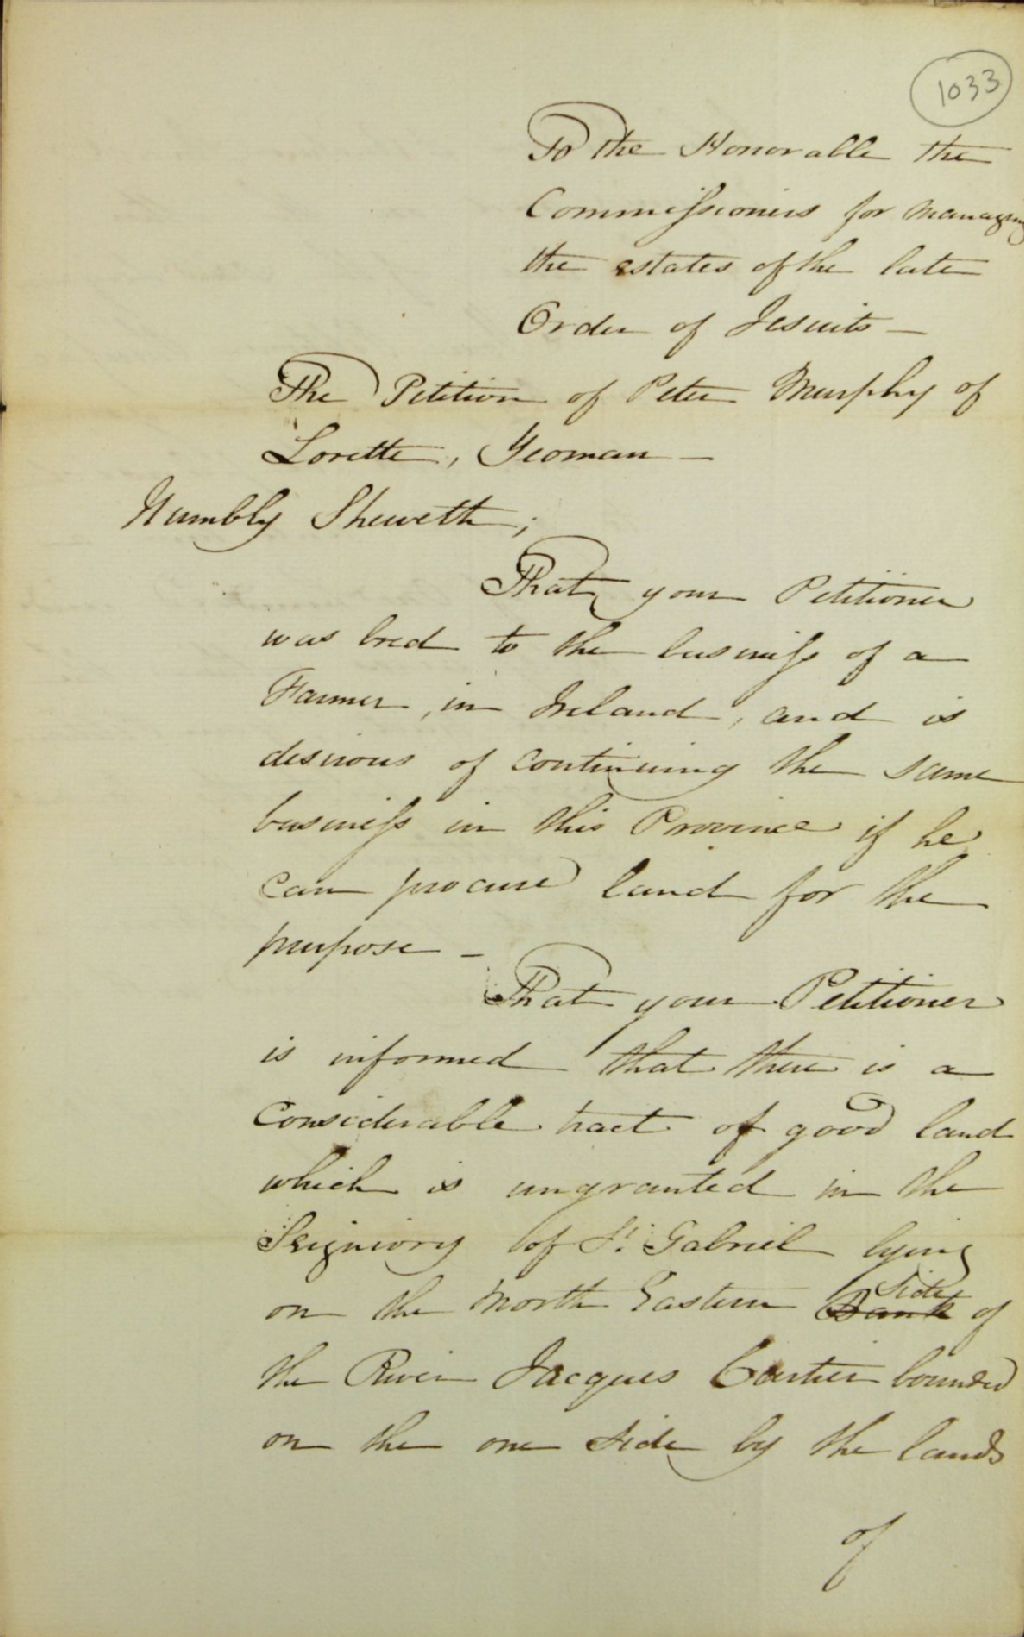 1033
To the Honorable the
Commissioners for managing
the estates of the late
Order of Jesuits —
The Petition of Peter Murphy of
Lorette, Yeoman —
Humbly Sheweth;
That your Petitioner
was bred to the business of a
Farmer, in Ireland, and is
desirous of continuing the same
business in this Province if he
can procure land for the
purpose —
That your Petitioner
is informed that there is a
Considerable tract of good land
which is ungranted in the
Seigniory of St. Gabriel lying
Side
on the North Eastern Bank of
the River Jacques Cartier bounded
on the one side by the lands
of